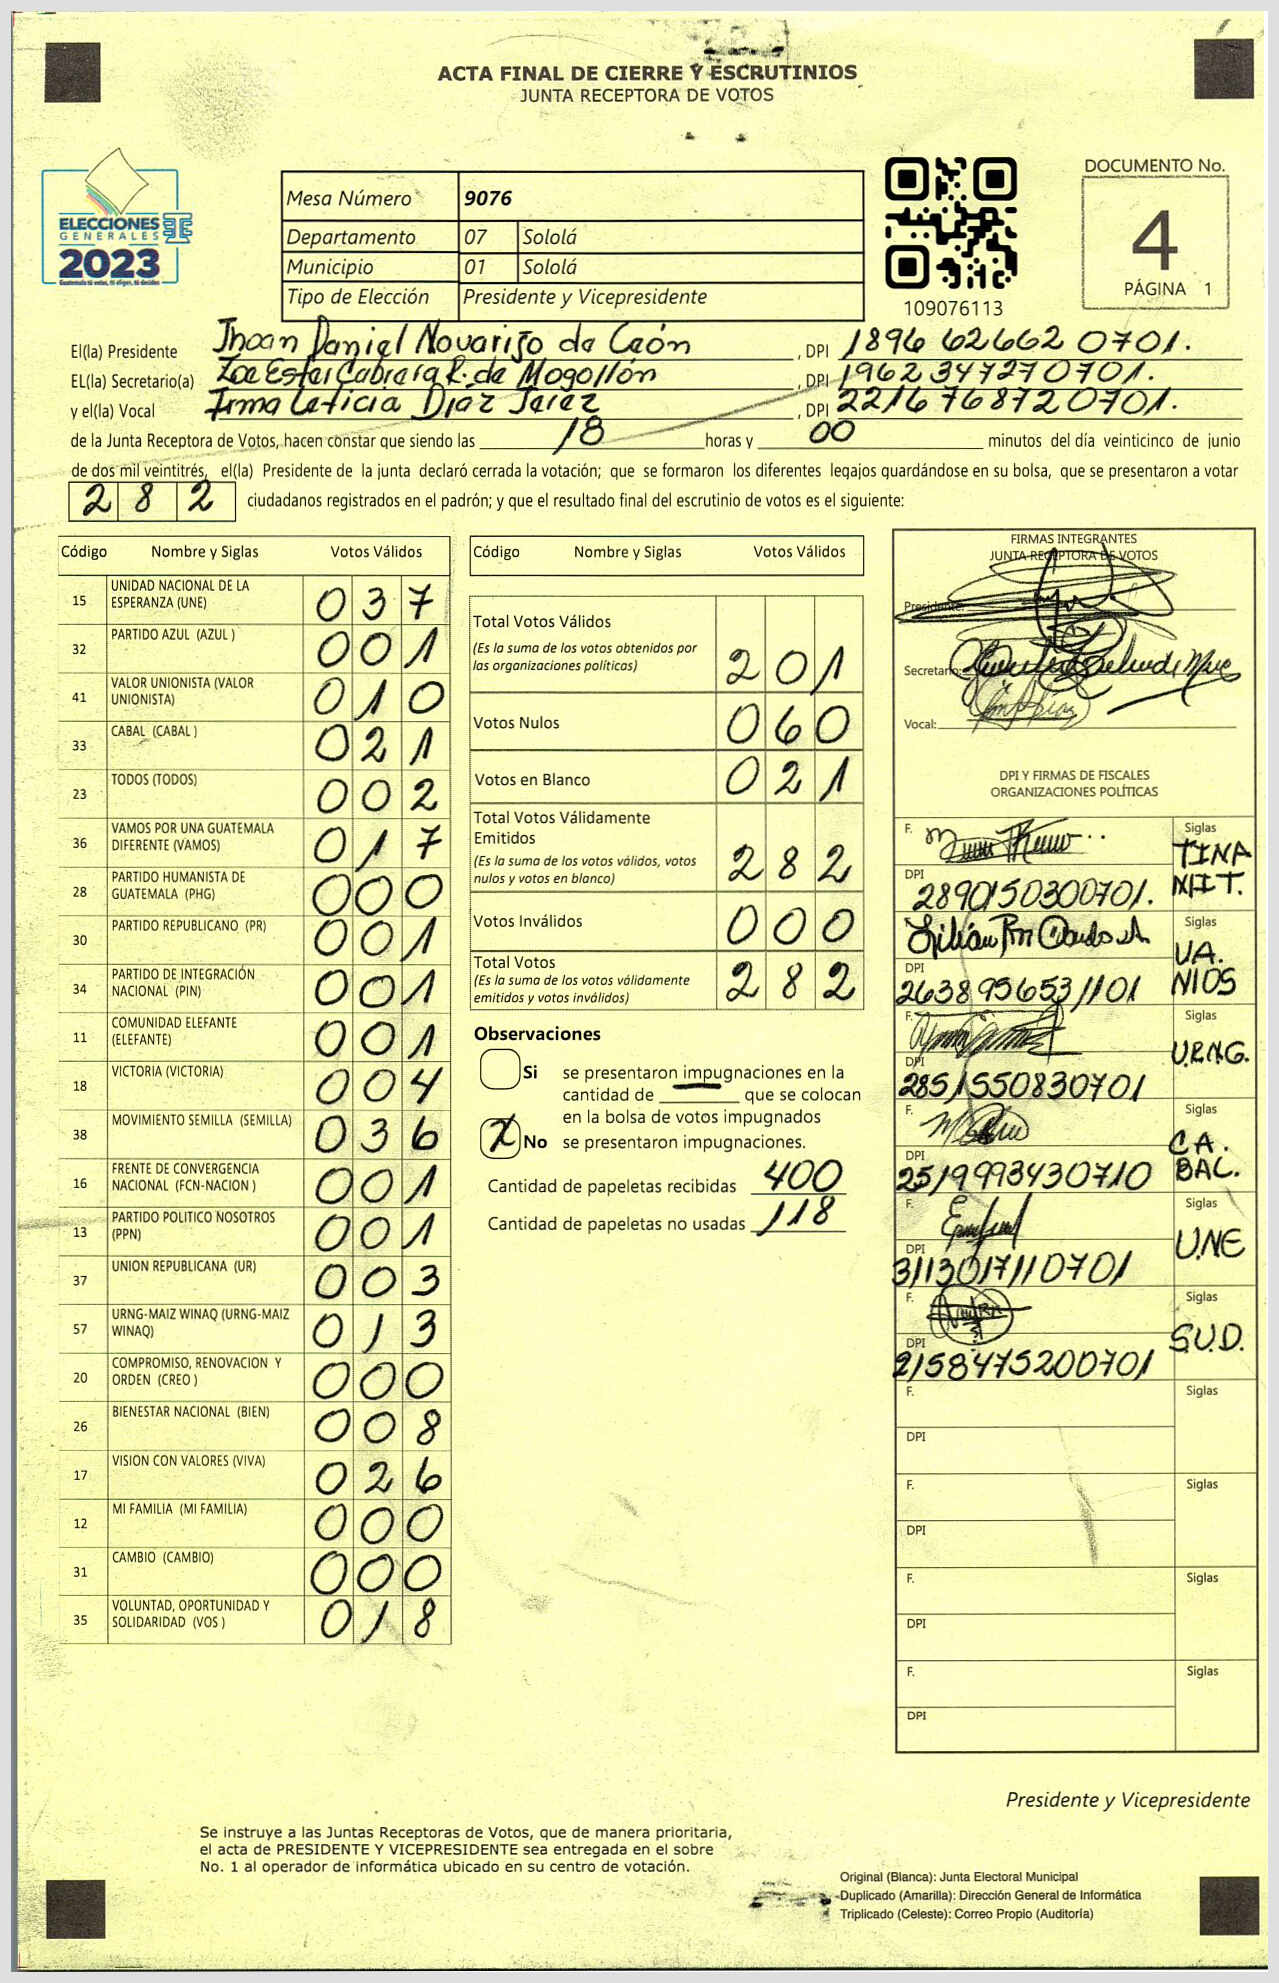 ACTA FINAL DE CIERRE Y ESCRUTINIOS
JUNTA RECEPTORA DE VOTOS
ELECCIONES
GENERALES
2023
Guatemala tú votas, tú eliges, tú decides
Mesa Número 9076
Departamento 07 Sololá
Municipio 01 Sololá
Tipo de Elección Presidente y Vicepresidente
109076113
DOCUMENTO No.
4
PÁGINA 1
El(la) Presidente Jhoan Daniel de León , DPI 1896 62662 0701.
EL(la) Secretario(a) Zoe Ester Cabrera R. de Mogollón , DPI 1962347270701.
y el(la) Vocal Irma Leticia Díaz Jerez , DPI 2216768720701.
de la Junta Receptora de Votos, hacen constar que siendo las 18 horas y 00 minutos del día veinticinco de junio
de dos mil veintitrés, el(la) Presidente de la junta declaró cerrada la votación; que se formaron los diferentes legajos guardándose en su bolsa, que se presentaron a votar
282 ciudadanos registrados en el padrón; y que el resultado final del escrutinio de votos es el siguiente:
Código Nombre y Siglas Votos Válidos
15 UNIDAD NACIONAL DE LA ESPERANZA (UNE) 037
32 PARTIDO AZUL (AZUL ) 001
41 VALOR UNIONISTA (VALOR UNIONISTA) 010
33 CABAL (CABAL ) 021
23 TODOS (TODOS) 002
36 VAMOS POR UNA GUATEMALA DIFERENTE (VAMOS) 017
28 PARTIDO HUMANISTA DE GUATEMALA (PHG) 000
30 PARTIDO REPUBLICANO (PR) 001
34 PARTIDO DE INTEGRACIÓN NACIONAL (PIN) 001
11 COMUNIDAD ELEFANTE (ELEFANTE) 001
18 VICTORIA (VICTORIA) 004
38 MOVIMIENTO SEMILLA (SEMILLA) 036
16 FRENTE DE CONVERGENCIA NACIONAL (FCN-NACION ) 001
13 PARTIDO POLITICO NOSOTROS (PPN) 001
37 UNION REPUBLICANA (UR) 003
57 URNG-MAIZ WINAQ (URNG-MAIZ WINAQ) 013
20 COMPROMISO, RENOVACION Y ORDEN (CREO ) 000
26 BIENESTAR NACIONAL (BIEN) 008
17 VISION CON VALORES (VIVA) 026
12 MI FAMILIA (MI FAMILIA) 000
31 CAMBIO (CAMBIO) 000
35 VOLUNTAD, OPORTUNIDAD Y SOLIDARIDAD (VOS ) 018
Código Nombre y Siglas Votos Válidos
Total Votos Válidos
(Es la suma de los votos obtenidos por
las organizaciones políticas) 201
Votos Nulos 060
Votos en Blanco 021
Total Votos Válidamente
Emitidos
(Es la suma de los votos válidos, votos
nulos y votos en blanco) 282
Votos Inválidos 000
Total Votos
(Es la suma de los votos válidamente
emitidos y votos inválidos) 282
Observaciones
Si se presentaron impugnaciones en la
cantidad de — que se colocan
en la bolsa de votos impugnados
X No se presentaron impugnaciones.
Cantidad de papeletas recibidas 400
Cantidad de papeletas no usadas 118
FIRMAS INTEGRANTES
JUNTA RECEPTORA DE VOTOS
Presidente:
Secretario:
Vocal:
DPI Y FIRMAS DE FISCALES
ORGANIZACIONES POLÍTICAS
F. Siglas
TINA
NIT.
DPI 2890150300701.
Siglas
UA.
NIOS
DPI 2638956531101
F. Siglas
U.R.N.G.
DPI 2851550830701
F. Siglas
CA.
BAL.
DPI 2519993430710
F. Siglas
U.NE
DPI 3113017110701
F. Siglas
S.U.D.
DPI 2158475200701
F. Siglas
DPI
F. Siglas
DPI
F. Siglas
DPI
F. Siglas
DPI
Presidente y Vicepresidente
Se instruye a las Juntas Receptoras de Votos, que de manera prioritaria,
el acta de PRESIDENTE Y VICEPRESIDENTE sea entregada en el sobre
No. 1 al operador de informática ubicado en su centro de votación.
Original (Blanca): Junta Electoral Municipal
Duplicado (Amarilla): Dirección General de Informática
Triplicado (Celeste): Correo Propio (Auditoría)